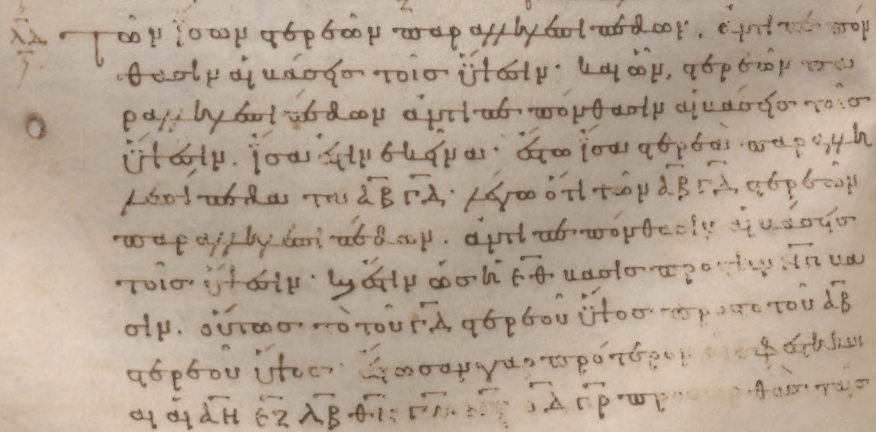 λδ τῶν ἴσων στερεῶν παραλληλεπιπέδων, ἀντιπεπόν
θασιν αἱ βάσεις τοῖς ὕψεσιν· καὶ ὧν, στερεῶν πα
ραλληλεπιπέδων ἀντιπεπόνθασιν αἱ βάσεις τοῖς
ὕψεσιν. ἴσα ἐστὶν ἐκεῖνα· ἔστω ἴσα στερεὰ παραλλη
λεπίπεδα τὰ ΑΒ ΓΔ· λέγω ὅτι τῶν ΑΒ ΓΔ στερεῶν
παραλληλεπιπέδων. ἀντιπεπόνθασιν αἱ βάσεις
τοῖς ὕψεσιν· καὶ ἐστιν ὡς ἡ ΕΘ βάσις πρὸς τὴν ΝΠ βά
σιν. οὕτως τὸ τοῦ ΓΔ στερεοῦ ὕψος πρὸς τὸ τοῦ ΑΒ
στερεοῦ ὕψος· ἔστωσαν γὰρ πρότερον ἐφεστηκυῖ
αι αἱ ΑΗ ΕΖ ΛΒ ΘΚ ΓΜ ΟΔ ΠΡ πρὸς ταῖς